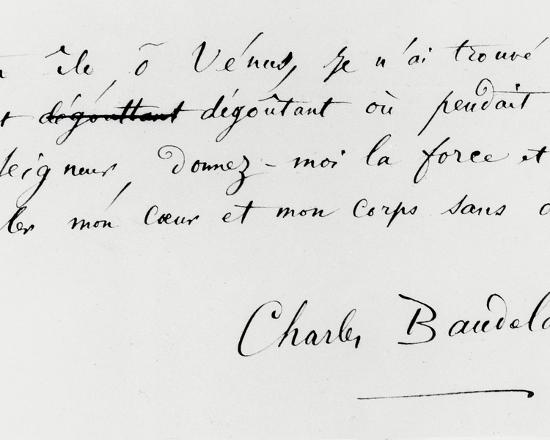 île, ô Vénus, je n'ai trouvé
dégouttant dégoûtant où pendait
Seigneur, donnez-moi la force et
mon cœur et mon corps sans d
Charles Baudela